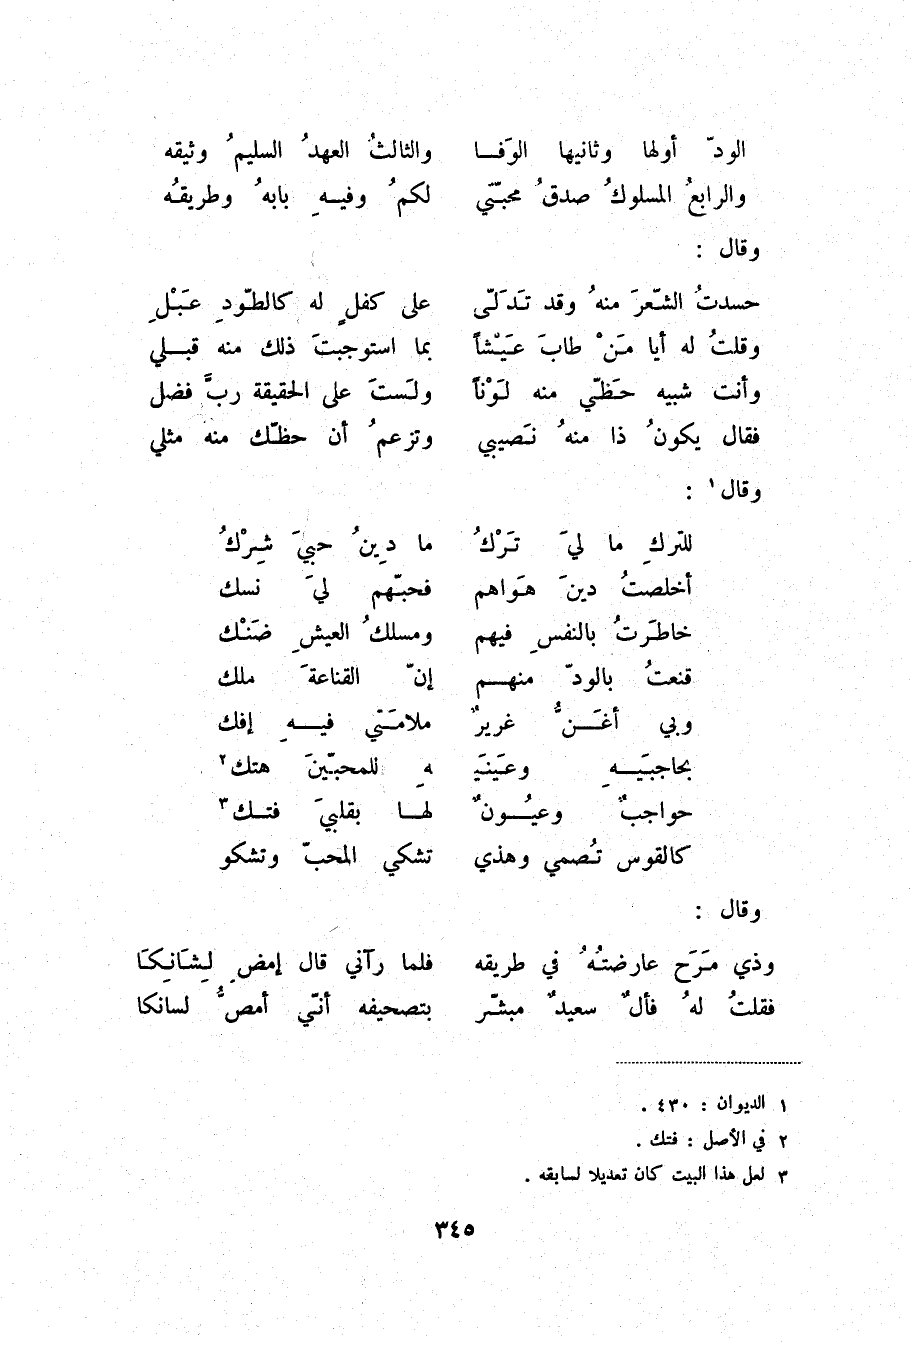 الودّ أولها وثانيها الوَفـــا والثالثُ العهدُ السليمُ وثيقه
والرابعُ المسلوكُ صدقُ محبّتي لكمُ وفيـــهِ بابهُ وطريقُه
وقال :
حسدتُ الشّعرَ منهُ وقد تَدَلّى على كفلٍ له كالطّودِ عَبْلِ
وقلتُ له أيا مَنْ طابَ عَيْشاً بما استوجبتَ ذلك منه قبــلي
وأنت شبيه حَظّي منه لَوْناً ولَستَ على الحقيقة ربَّ فضل
فقال يكونُ ذا منهُ نَصيبي وتزعمُ أن حظّك منه مثلي
وقال ١ :
للتّركِ ما ليَ تَرْكُ ما دِينُ حبيَ شِرْكُ
أخلصتُ دينَ هَواهم فحبّهم ليَ نسك
خاطَرتُ بالنفسِ فيهم ومسلكُ العيشِ ضَنْك
قنعتُ بالودّ منهـــم إنّ القناعةَ ملك
وبي أغَــنُّ غريرٌ ملامَتي فيـــهِ إفك
بحاجبَيـــهِ وعَينَيـ ـهِ للمحبّينَ هتك٢
حواجبٌ وعيُـــونٌ لهــا بقلبيَ فتــك٣
كالقوس تُصمي وهذي تشكي المحبّ وتشكو
وقال :
وذي مَرَح عارضتُهُ في طريقه فلما رآني قال إمضِ لِشَانِكَا
فقلتُ لهُ فألٌ سعيدٌ مبشّر بتصحيفه أنّي أمصُّ لسانكا
١ الديوان : ٤٣٠ .
٢ في الأصل : فتك .
٣ لعل هذا البيت كان تعديلا لسابقه .
٣٤٥